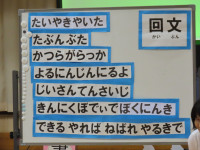 回文
かい ぶん
たいやきやいた
たぶんぶた
かつらがらっか
よるにんじんにるよ
じいさんてんさいじ
きんにくぼでぃでぼくにんき
できる やれば ねばれ やるきで